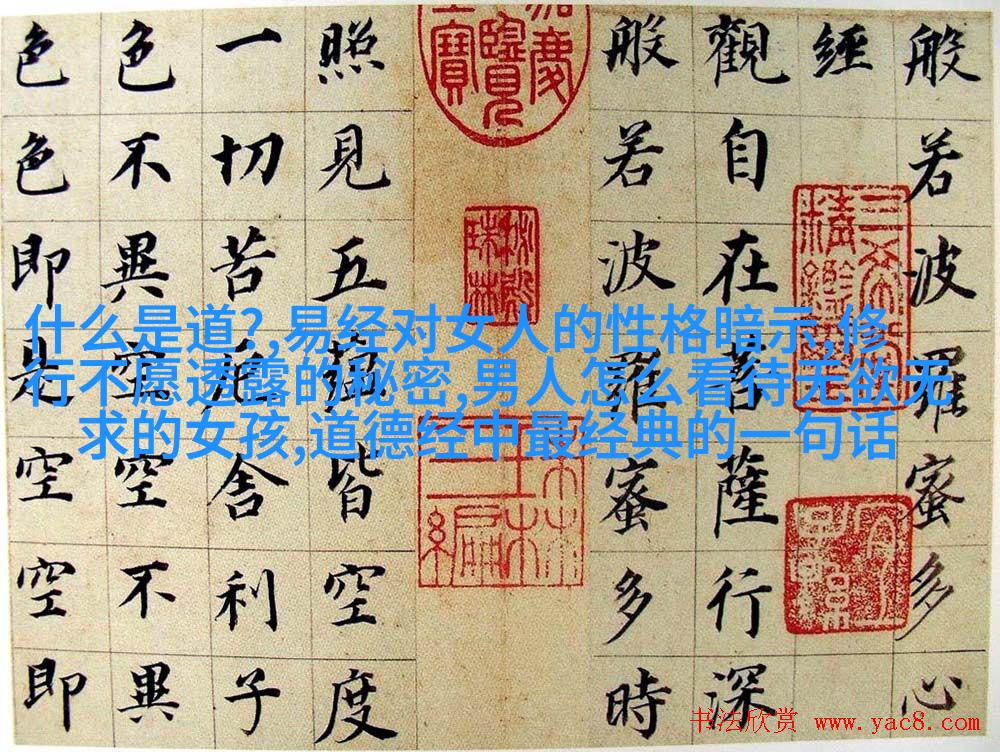 般若波羅蜜多心
經
觀自在菩薩行深
般若波羅蜜多時
照見五蘊皆空度
一切苦厄舍利子
色不異空空不異
色色即是空空即
什么是道?,易经对女人的性格暗示,修
行不愿透露的秘密,男人怎么看待无欲无
求的女孩,道德经中最经典的一句话
三希堂精鑑璽
宜子孫
秘殿珠林
书法欣赏 www.yac8.com